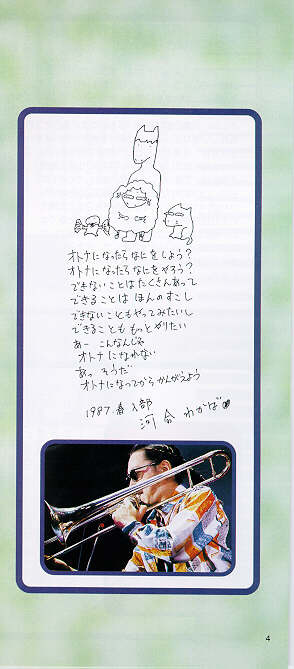 オトナになったらなにをしよう？
オトナになったらなにをやろう？
できないことはたくさんあって
できることは ほんのすこし
できないこともやってみたいし
できることも もっとやりたい
あー こんなんじゃ
オトナになれない
あっ そうだ
オトナになってから かんがえよう
1987.春 入部
河合 わかば
4